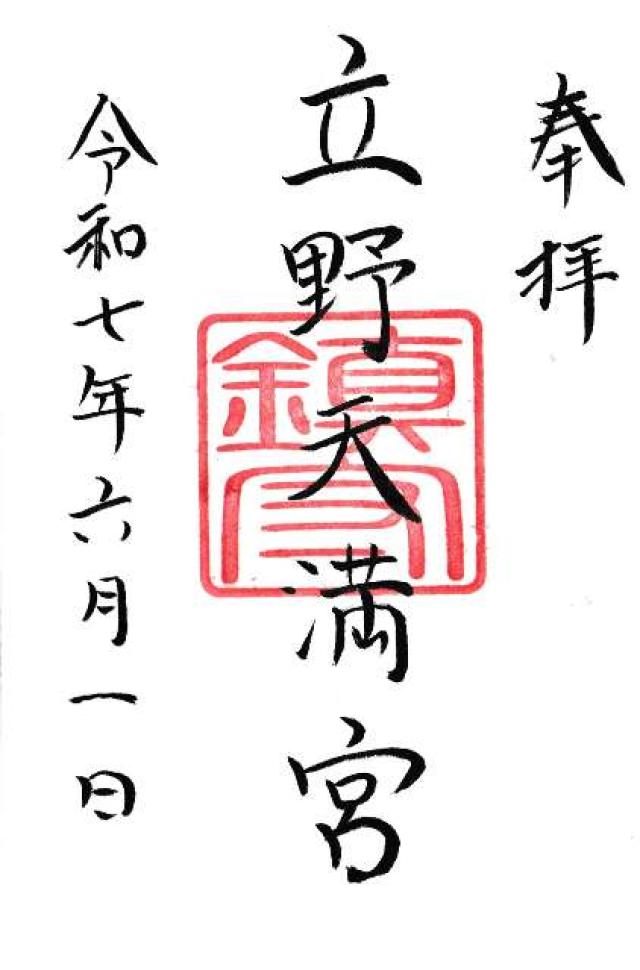 奉拝
立野天満宮
令和七年六月一日